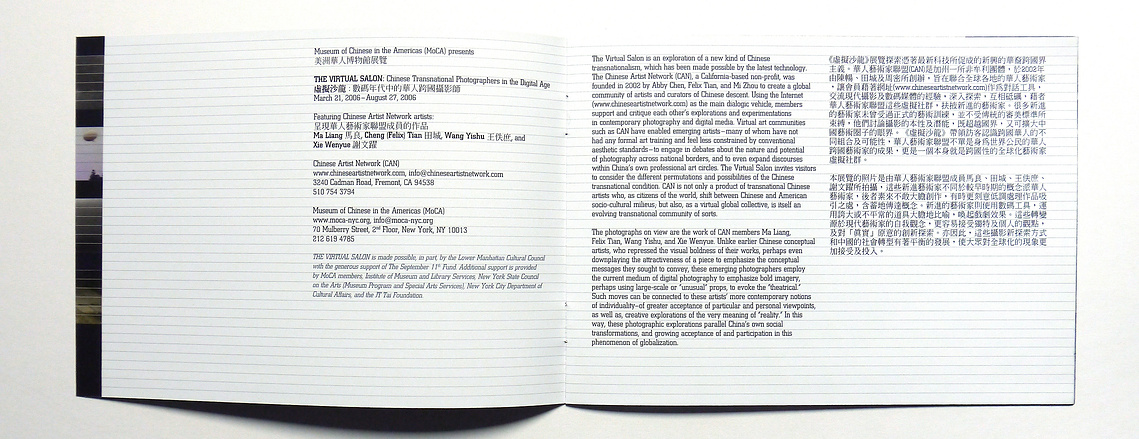 Museum of Chinese in the Americas (MoCA) presents
美洲華人博物館展覽
THE VIRTUAL SALON: Chinese Transnational Photographers in the Digital Age
虛擬沙龍：數碼年代中的華人跨國攝影師
March 21, 2006–August 27, 2006
Featuring Chinese Artist Network artists:
呈現華人藝術家聯盟成員的作品
Ma Liang 馬良, Cheng (Felix) Tian 田城, Wang Yishu 王佚庶, and
Xie Wenyue 謝文躍
Chinese Artist Network (CAN)
www.chineseartistnetwork.com, info@chineseartistnetwork.com
3240 Cadman Road, Fremont, CA 94538
510 754 3794
Museum of Chinese in the Americas (MoCA)
www.moca-nyc.org, info@moca-nyc.org
70 Mulberry Street, 2nd Floor, New York, NY 10013
212 619 4785
THE VIRTUAL SALON is made possible, in part, by the Lower Manhattan Cultural Council
with the generous support of The September 11th Fund. Additional support is provided
by MoCA members, Institute of Museum and Library Services, New York State Council
on the Arts (Museum Program and Special Arts Services), New York City Department of
Cultural Affairs, and the IT Tai Foundation.
The Virtual Salon is an exploration of a new kind of Chinese
transnationalism, which has been made possible by the latest technology.
The Chinese Artist Network (CAN), a California-based non-profit, was
founded in 2002 by Abby Chen, Felix Tian, and Mi Zhou to create a global
community of artists and curators of Chinese descent. Using the Internet
(www.chineseartistnetwork.com) as the main dialogic vehicle, members
support and critique each other's explorations and experimentations
in contemporary photography and digital media. Virtual art communities
such as CAN have enabled emerging artists—many of whom have not
had any formal art training and feel less constrained by conventional
aesthetic standards—to engage in debates about the nature and potential
of photography across national borders, and to even expand discourses
within China's own professional art circles. The Virtual Salon invites visitors
to consider the different permutations and possibilities of the Chinese
transnational condition. CAN is not only a product of transnational Chinese
artists who, as citizens of the world, shift between Chinese and American
socio-cultural milieus, but also, as a virtual global collective, is itself an
evolving transnational community of sorts.
The photographs on view are the work of CAN members Ma Liang,
Felix Tian, Wang Yishu, and Xie Wenyue. Unlike earlier Chinese conceptual
artists, who repressed the visual boldness of their works, perhaps even
downplaying the attractiveness of a piece to emphasize the conceptual
messages they sought to convey, these emerging photographers employ
the current medium of digital photography to emphasize bold imagery,
perhaps using large-scale or "unusual" props, to evoke the "theatrical."
Such moves can be connected to these artists' more contemporary notions
of individuality—of greater acceptance of particular and personal viewpoints,
as well as, creative explorations of the very meaning of "reality." In this
way, these photographic explorations parallel China's own social
transformations, and growing acceptance of and participation in this
phenomenon of globalization.
《虛擬沙龍》展覽探索憑著最新科技所促成的新興的華裔跨國界
主義。華人藝術家聯盟(CAN)是加州一所非牟利團體，於2002年
由陳暢、田城及周密所創辦，旨在聯合全球各地的華人藝術家
，讓會員藉著網址(www.chineseartistnetwork.com)作爲對話工具，
交流現代攝影及數碼媒體的經驗，深入探索，互相砥礪，藉著
華人藝術家聯盟這些虛擬社群，扶掖新進的藝術家。很多新進
的藝術家未曾受過正式的藝術訓練，並不受傳統的審美標準所
束縛，他們討論攝影的本性及潛能，既超越國界，又可擴大中
國藝術圈子的眼界。《虛擬沙龍》帶領訪客認識跨國華人的不
同組合及可能性，華人藝術家聯盟不單是身爲世界公民的華人
跨國藝術家的成果，更是一個本身就是跨國性的全球化藝術家
虛擬社群。
本展覽的照片是由華人藝術家聯盟成員馬良、田城、王佚庶、
謝文躍所拍攝，這些新進藝術家不同於較早時期的概念派華人
藝術家，後者素來不敢大膽創作，有時更刻意低調處理作品吸
引之處，含蓄地傳達概念。新進的藝術家則使用數碼工具，運
用誇大或不平常的道具大膽地比喻，喚起戲劇效果。這些轉變
源於現代藝術家的自我觀念，更容易接受獨特及個人的觀點，
及對「真實」原意的創新探索。亦因此，這些攝影新探索方式
和中國的社會轉型有著平衡的發展，使大眾對全球化的現象更
加接受及投入。